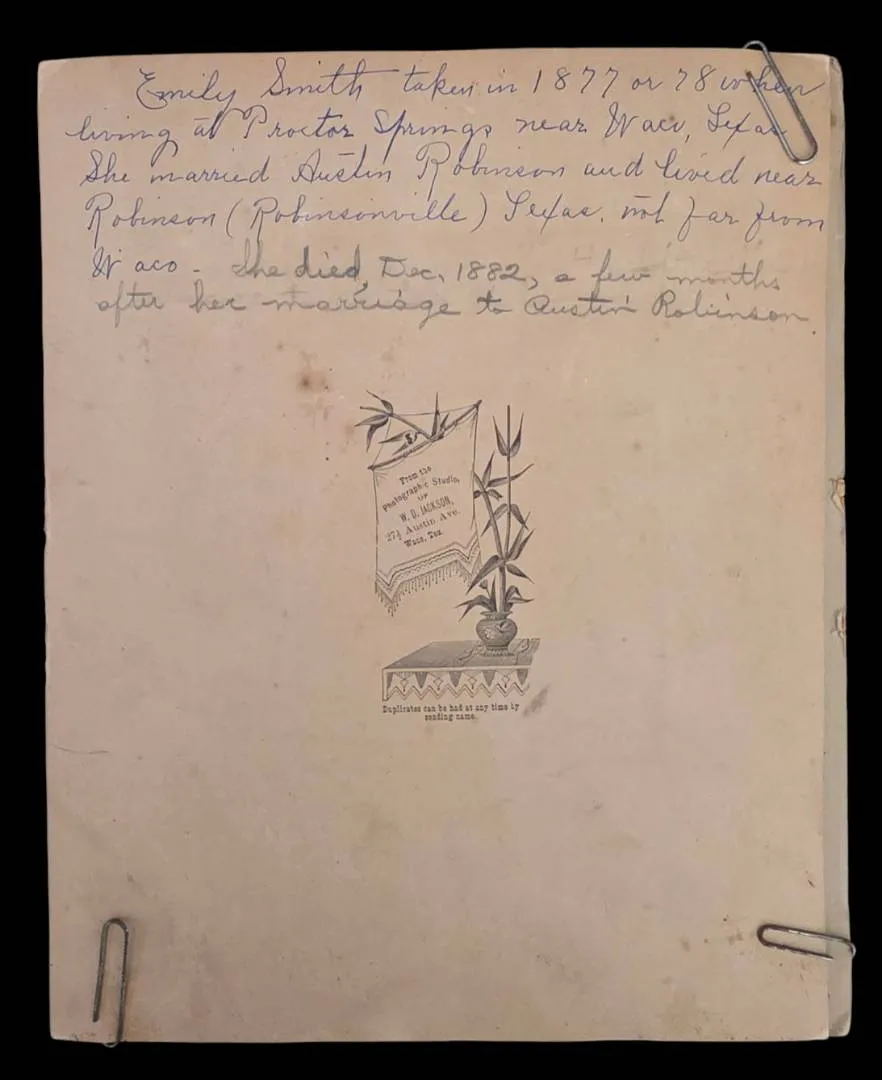 Emily Smith taken in 1877 or 78 when
living at Proctor Springs near Waco, Texas
She married Austin Robinson and lived near
Robinson (Robinsonville) Texas, not far from
Waco - She died, Dec. 1882, a few months
after her marriage to Austin Robinson.
From the
Photographic Studio,
OF
W. D. JACKSON,
27½ Austin Ave.
Waco, Tex.
Duplicates can be had at any time by
sending name.